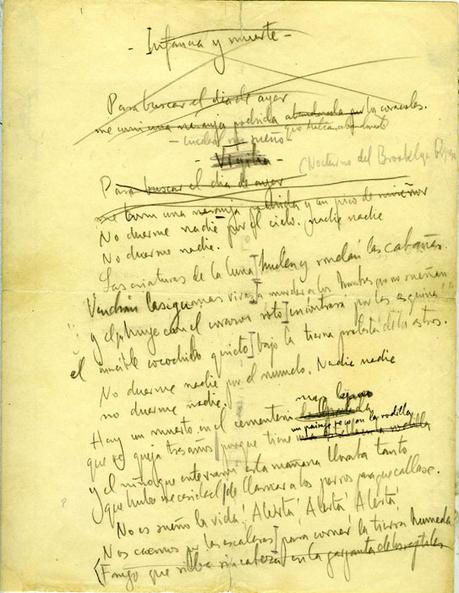 - Infancia y muerte -
Para buscar el día de ayer
me comí una naranja podrida abandonada por los caracoles.
- Ciudad sin sueño -
- Vigilia - (Nocturno del Brooklyn Bridge
Para buscar el dia de ayer
me comí una naranja podrida y un poco de
No duerme nadie por el cielo. Nadie nadie
No duerme nadie.
Las criaturas de la luna huelen y rondan las cabañas.
Vendrán las iguanas vivas a morder a los hombres que no sueñan
y el que huye con el corazon roto encontrará por las esquinas
el increible cocodrilo quieto bajo la tierna protesta de los astros.
No duerme nadie por el mundo. Nadie nadie
no duerme nadie.
mas lejano
Hay un muerto en el cementerio
un paisaje seco en la rodilla
que se queja tres años porque tiene
y el niño que enterraron esta mañana lloraba tanto
que hubo necesidad de llamar a los perros para que callase.
No es sueño la vida! Alerta! Alerta! Alerta!
Nos caemos por las escaleras para comer la tierra humeda
que silba sin cabeza en la garganta de los reptiles